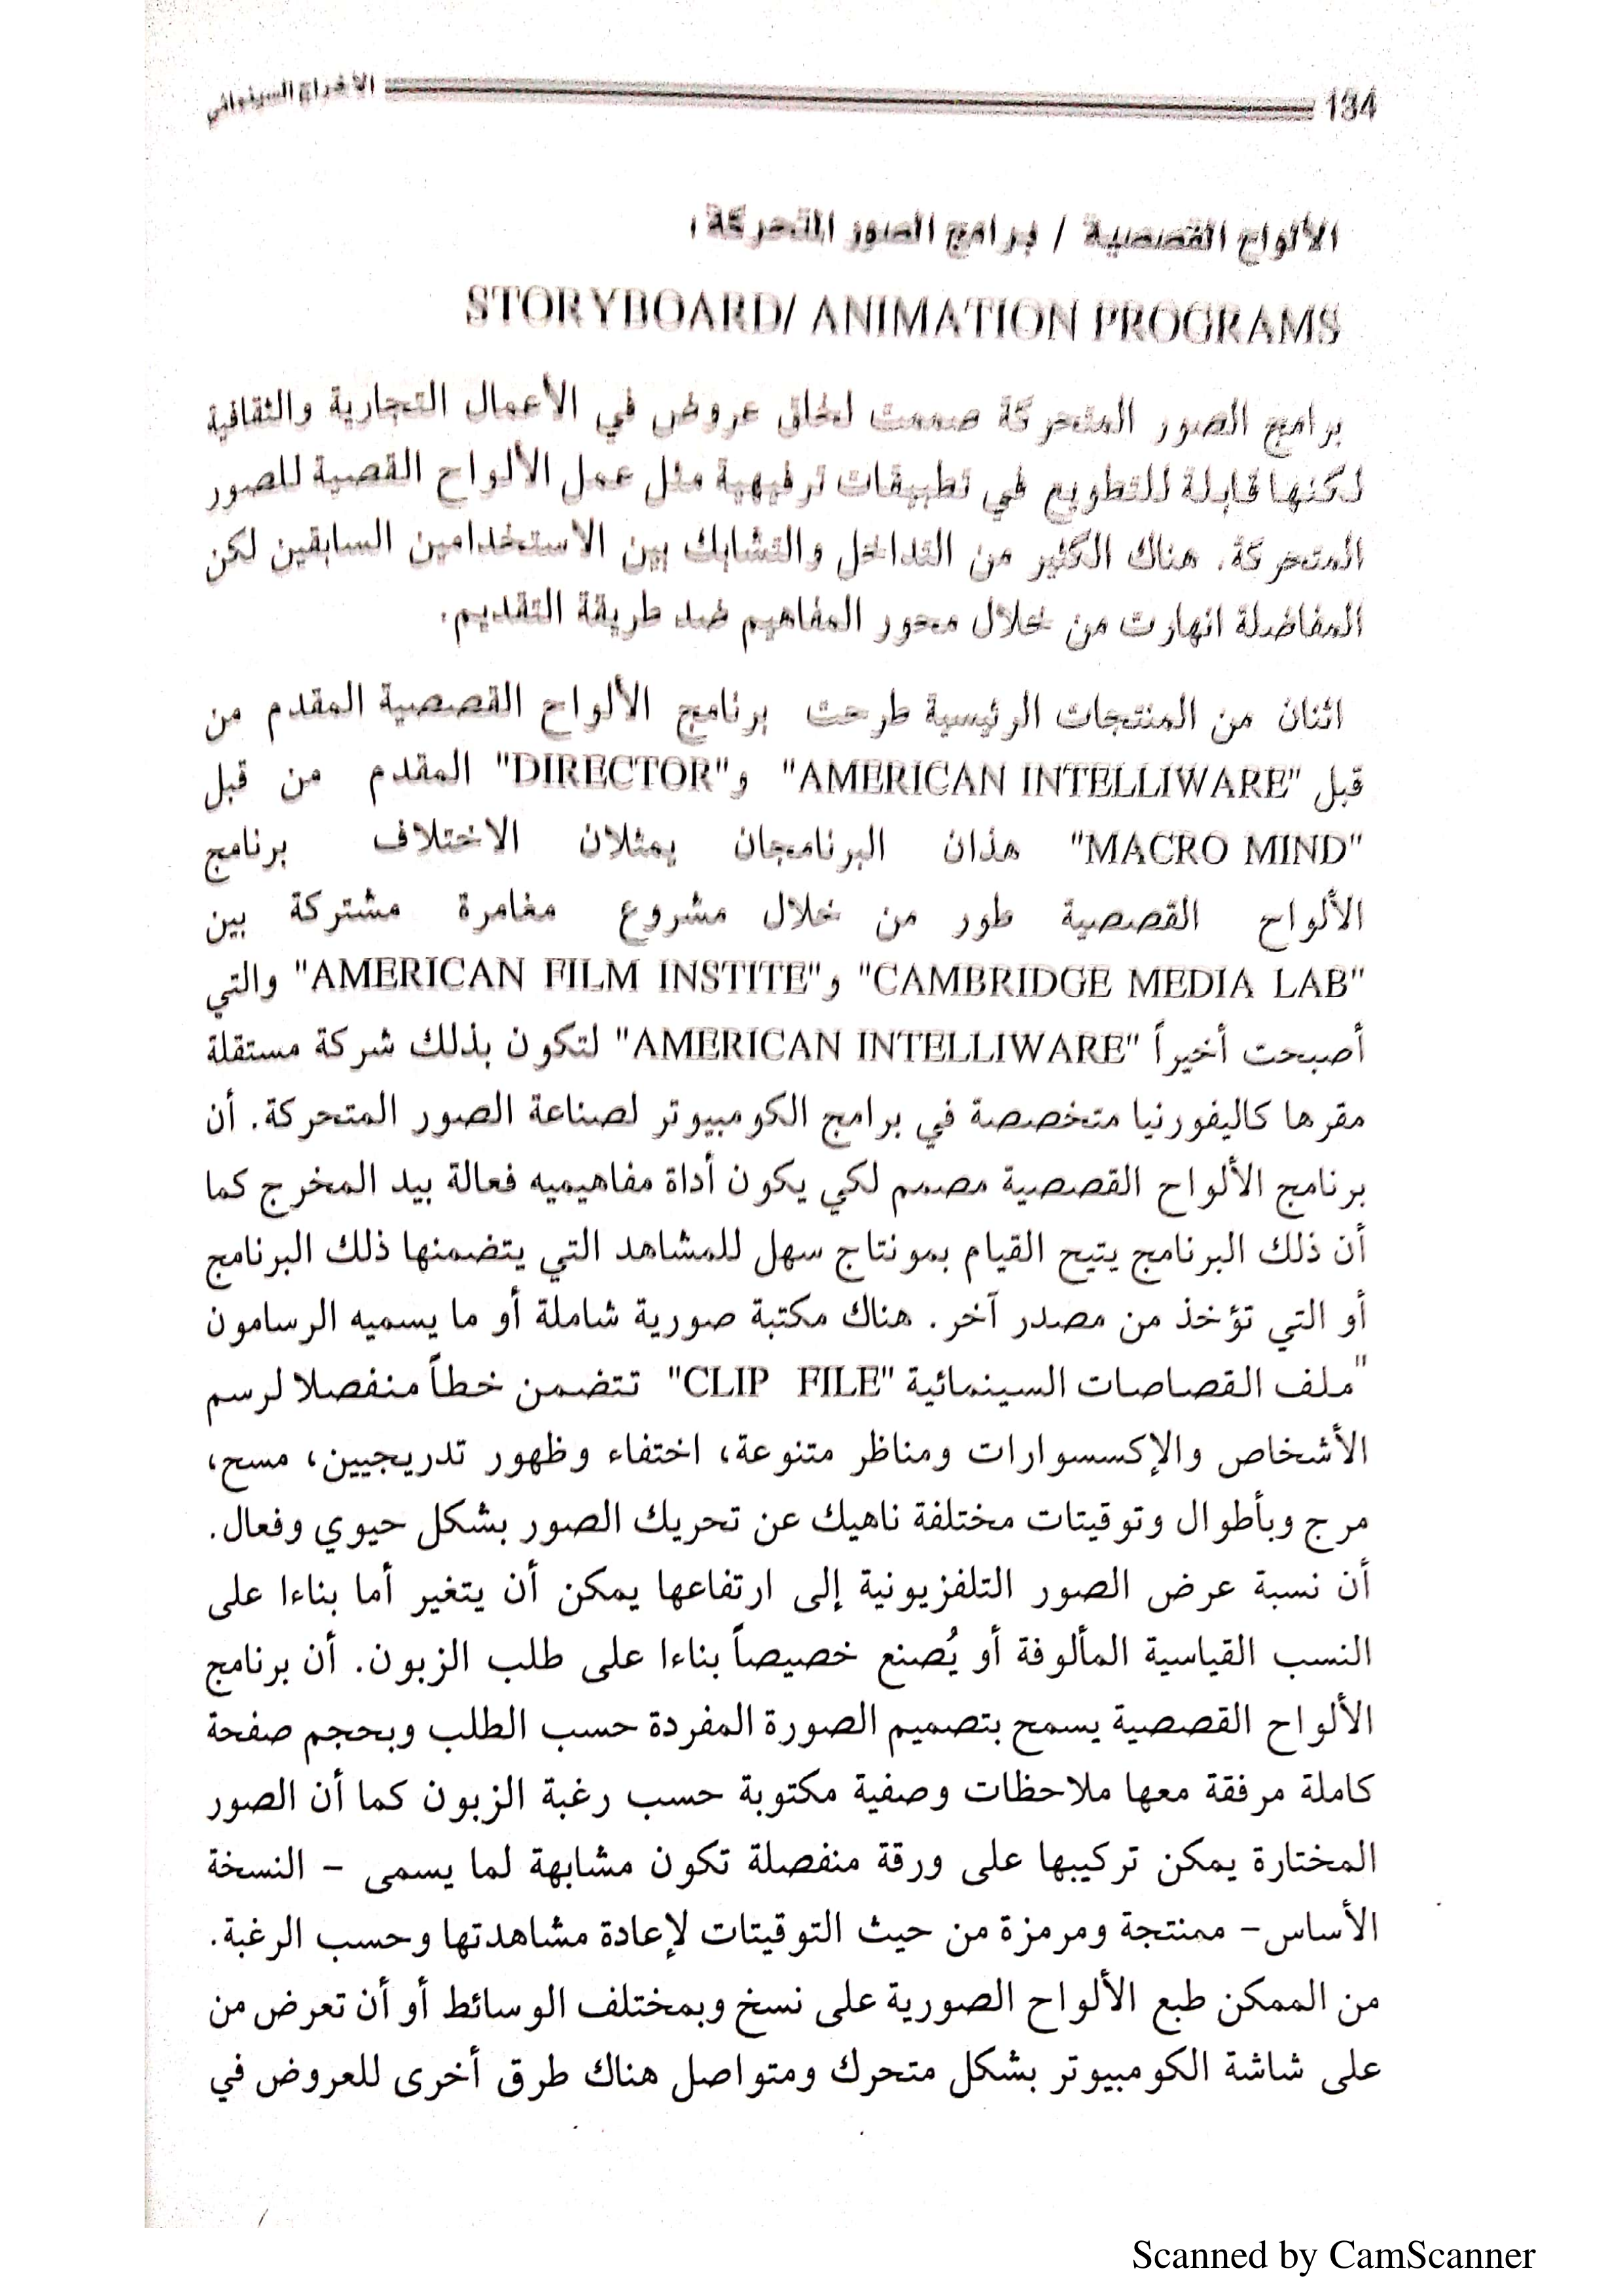 134 الاخراج السينمائي
الألواح القصصية / برامج الصور المتحركة :
STORYBOARD/ ANIMATION PROGRAMS
برامج الصور المتحركة صممت لخلق عروض في الأعمال التجارية والثقافية
لكنها قابلة للتطويع في تطبيقات ترفيهية مثل عمل الألواح القصية للصور
المتحركة. هناك الكثير من التداخل والتشابك بين الاستخدامين السابقين لكن
المفاضلة انهارت من خلال محور المفاهيم ضد طريقة التقديم.
اثنان من المنتجات الرئيسية طرحت برنامج الألواح القصصية المقدم من
قبل "AMERICAN INTELLIWARE" و"DIRECTOR" المقدم من قبل
"MACRO MIND" هذان البرنامجان يمثلان الاختلاف برنامج
الألواح القصصية طور من خلال مشروع مغامرة مشتركة بين
"CAMBRIDGE MEDIA LAB" و"AMERICAN FILM INSTITE" والتي
أصبحت أخيراً "AMERICAN INTELLIWARE" لتكون بذلك شركة مستقلة
مقرها كاليفورنيا متخصصة في برامج الكومبيوتر لصناعة الصور المتحركة. أن
برنامج الألواح القصصية مصمم لكي يكون أداة مفاهيميه فعالة بيد المخرج كما
أن ذلك البرنامج يتيح القيام بمونتاج سهل للمشاهد التي يتضمنها ذلك البرنامج
أو التي تؤخذ من مصدر آخر. هناك مكتبة صورية شاملة أو ما يسميه الرسامون
"ملف القصاصات السينمائية "CLIP FILE" تتضمن خطاً منفصلا لرسم
الأشخاص والإكسسوارات ومناظر متنوعة، اختفاء وظهور تدريجيين، مسح،
مرج وبأطوال وتوقيتات مختلفة ناهيك عن تحريك الصور بشكل حيوي وفعال.
أن نسبة عرض الصور التلفزيونية إلى ارتفاعها يمكن أن يتغير أما بناءا على
النسب القياسية المألوفة أو يُصنع خصيصاً بناءا على طلب الزبون. أن برنامج
الألواح القصصية يسمح بتصميم الصورة المفردة حسب الطلب وبحجم صفحة
كاملة مرفقة معها ملاحظات وصفية مكتوبة حسب رغبة الزبون كما أن الصور
المختارة يمكن تركيبها على ورقة منفصلة تكون مشابهة لما يسمى – النسخة
الأساس– ممنتجة ومرمزة من حيث التوقيتات لإعادة مشاهدتها وحسب الرغبة.
من الممكن طبع الألواح الصورية على نسخ وبمختلف الوسائط أو أن تعرض من
على شاشة الكومبيوتر بشكل متحرك ومتواصل هناك طرق أخرى للعروض في
Scanned by CamScanner